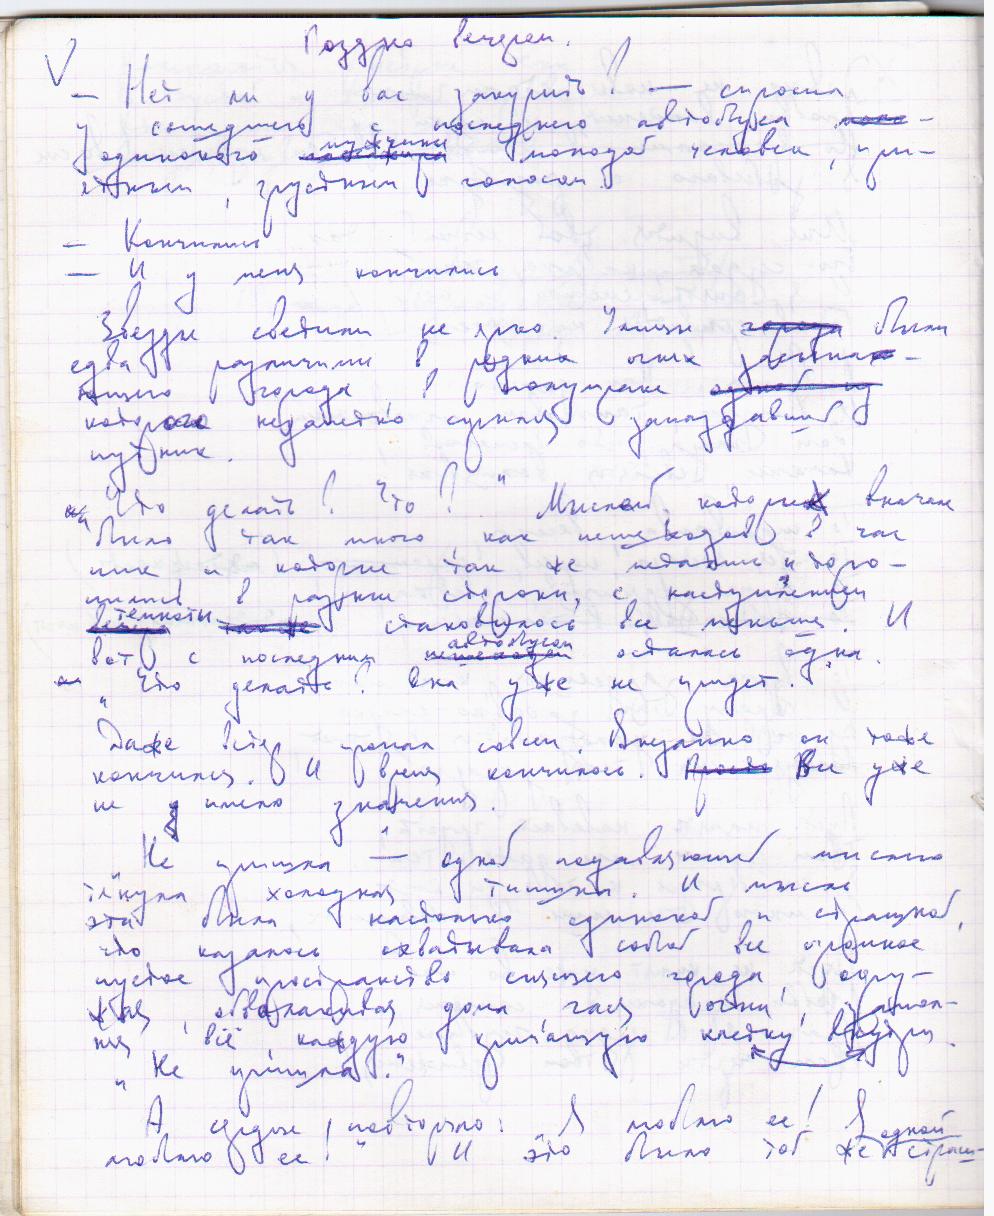 Поздно вечером.
V
— Нет ли у вас закурить? — спросил
у сошедшего с последнего автобуса
одинокого мужчины молодой человек, при-
ятным, грустным голосом.
— Кончились
— И у меня кончились
Звезды светили не ярко. Улицы города были
едва различимы в редких огнях засыпаю-
щего города, в полумраке одной из
которого недалеко сутулился запоздавший
путник.
"Что делать? Что?" Мыслей, которых вначале
было так много как пешеходов в час
пик и которые так же метались и торо-
пились в разные стороны, с наступлением
темноты становилось все меньше. И
вот с последним автобусом осталась одна.
"Что делать? Она уже не придет."
Даже ветер пропал совсем. Внезапно он тоже
кончился. И время кончилось. Просто Все уже
не имело значения.
"Не пришла" — одной подавляющей мыслью
тянула холодная тишина. И мысль
эта была настолько одинокой и страшной,
что казалось охватывала собой все огромное
пустое пространство спящего города, окру-
жая, обволакивая дома гася огни, запол-
няя всё, каждую кричащую клетку внутри.
"Не пришла".
А сердце повторяло: "Я люблю ее! Я
люблю ее!" И это было той же одной страш-